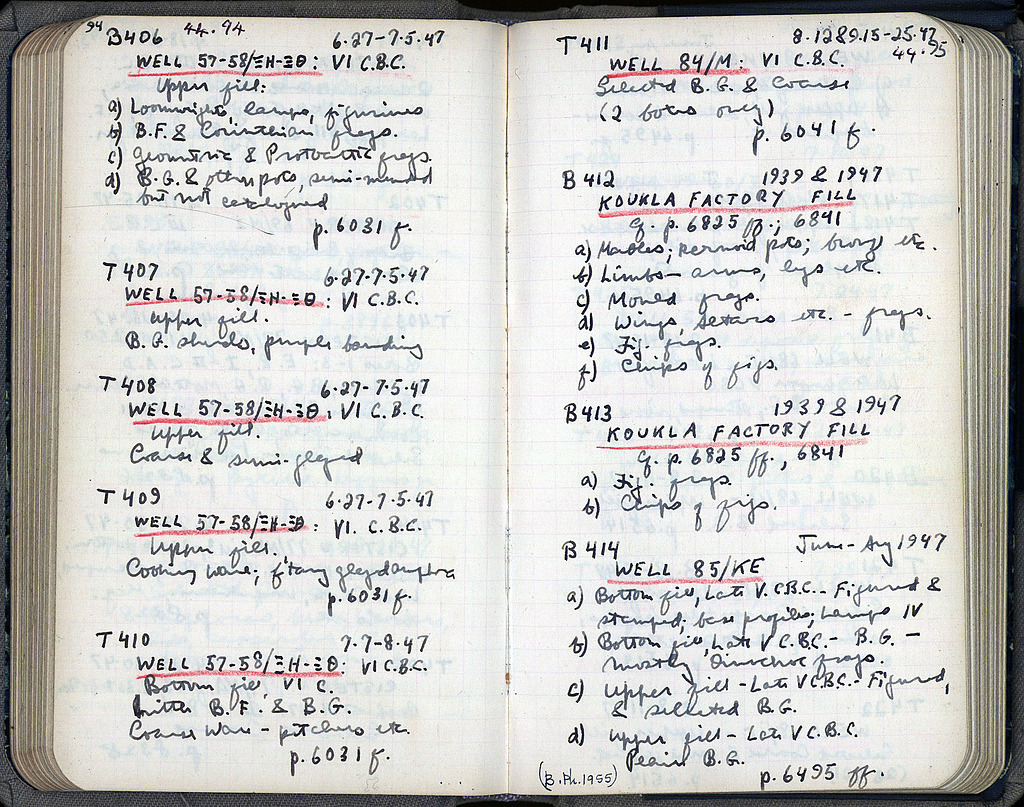 94
44.94
B406 6.27-7.5.47
WELL 57-58/ΞH-ΞΘ: VI C.B.C.
Upper fill:
a) Loomweights, lamps, figurines
b) B.F. & Corinthian frags.
c) Geometric & Protoattic frags.
d) B.G. & other pots, semi-mended
but not catalogued
p.6031 f.
T407 6.27-7.5.47
WELL 57-58/ΞH-ΞΘ: VI C.B.C.
Upper fill.
B.G. sherds, purple banding
T408 6.27-7.5.47
WELL 57-58/ΞH-ΞΘ: VI C.B.C.
Upper fill.
Coarse & semi-glazed
T409 6.27-7.5.47
WELL 57-58/ΞH-ΞΘ: VI. C.B.C.
Upper fill.
Cooking ware; glazed amphora
p.6031 f.
T410 7.7-8.47
WELL 57-58/ΞH-ΞΘ: VI C.B.C.
Bottom fill, VI C.
Little B.F. & B.G.
Coarse ware - pitchers etc.
p.6031 f.
T411 8.12-25.47
44.95
WELL 84/M: VI C.B.C.
Selected B.G. & Coarse
(2 boxes only)
p.6041 f.
B412 1939 & 1947
KOUKLA FACTORY FILL
Cf. p.6825 ff.; 6841
a) Marbles; pots; bronze etc.
b) Limbs - arms, legs etc.
c) Moned frags.
d) Wings, etc. - frags.
e) Fig. frags.
f) Chips of figs.
B413 1939 & 1947
KOUKLA FACTORY FILL
Cf. p.6825 ff., 6841
a) Fig. frags.
b) Chips of figs.
B414 June-Aug 1947
WELL 85/KE
a) Bottom fill, Late V.C.B.C. - Figured &
stamped; base profiles; Lamps IV
b) Bottom fill, Late V C.B.C. - B.G. -
mostly frags.
c) Upper fill - Late V C.B.C. - Figured,
& selected B.G.
d) Upper fill - Late V C.B.C.
Plain B.G.
(B.Ph.1955) p.6495 ff.